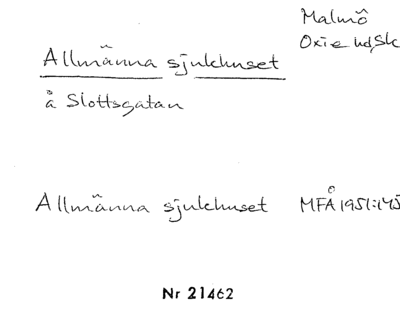 Malmö
Oxie hd, Sk
Allmänna sjukhuset
å Slottsgatan
Allmänna sjukhuset MFÅ 1951:145
Nr 21462